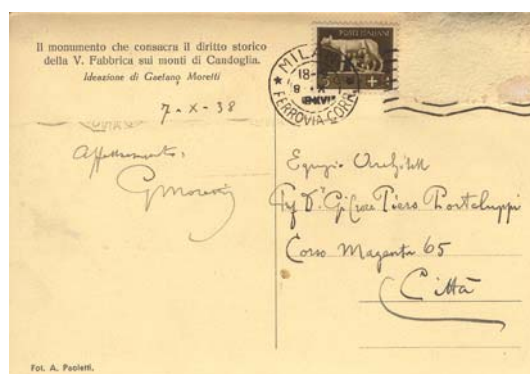 Il monumento che consacra il diritto storico
della V. Fabbrica sui monti di Candoglia.
Ideazione di Gaetano Moretti
7-X-38
Affettuosamente,
GMoretti
POSTE ITALIANE
MILANO
18-
8 X
XVI
FERROVIA CORR.
Egregio Architett
Piero Portaluppi
Corso Magenta 65
Città
Fot. A. Paoletti.